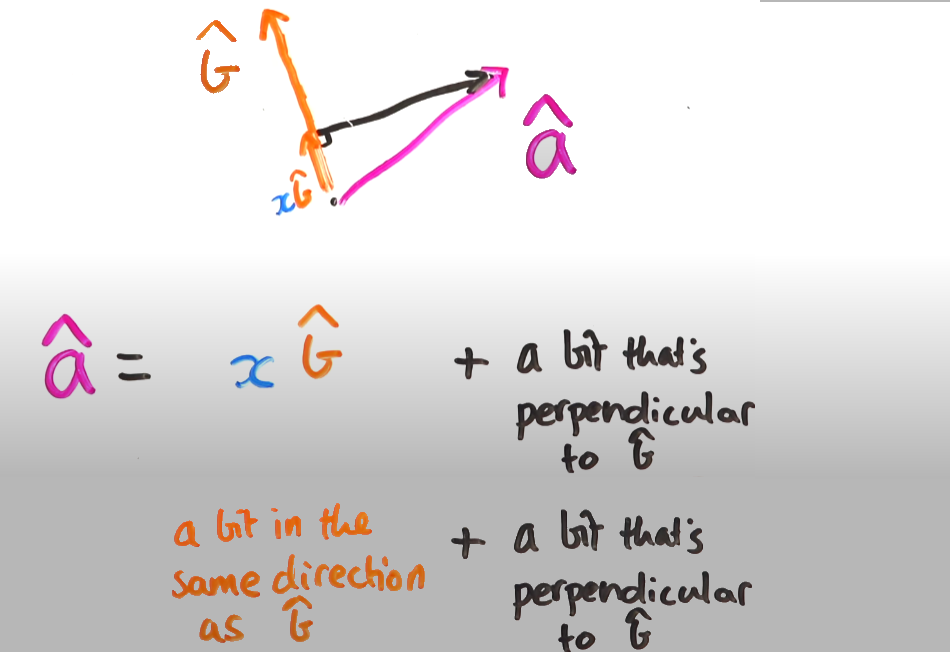 b̂
â
x b̂
â = x b̂ + a bit that's
perpendicular
to b̂
a bit in the
same direction
as b̂
+ a bit that's
perpendicular
to b̂